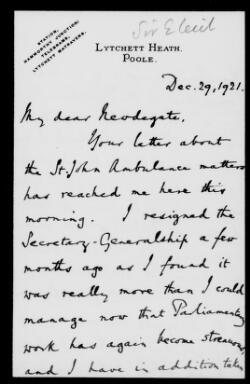 Sir E Cecil
STATION,
HAMWORTHY JUNCTION;
TELEGRAMS,
LYTCHETT MATRAVERS.
LYTCHETT HEATH,
POOLE.
Dec. 29, 1921.
My dear Newdegate,
Your letter about
the St. John Ambulance matters
has reached me here this
morning. I resigned the
Secretary-Generalship a few
months ago as I found it
was really more than I could
manage now that Parliamentary
work has again become strenuous
and I have in addition taken